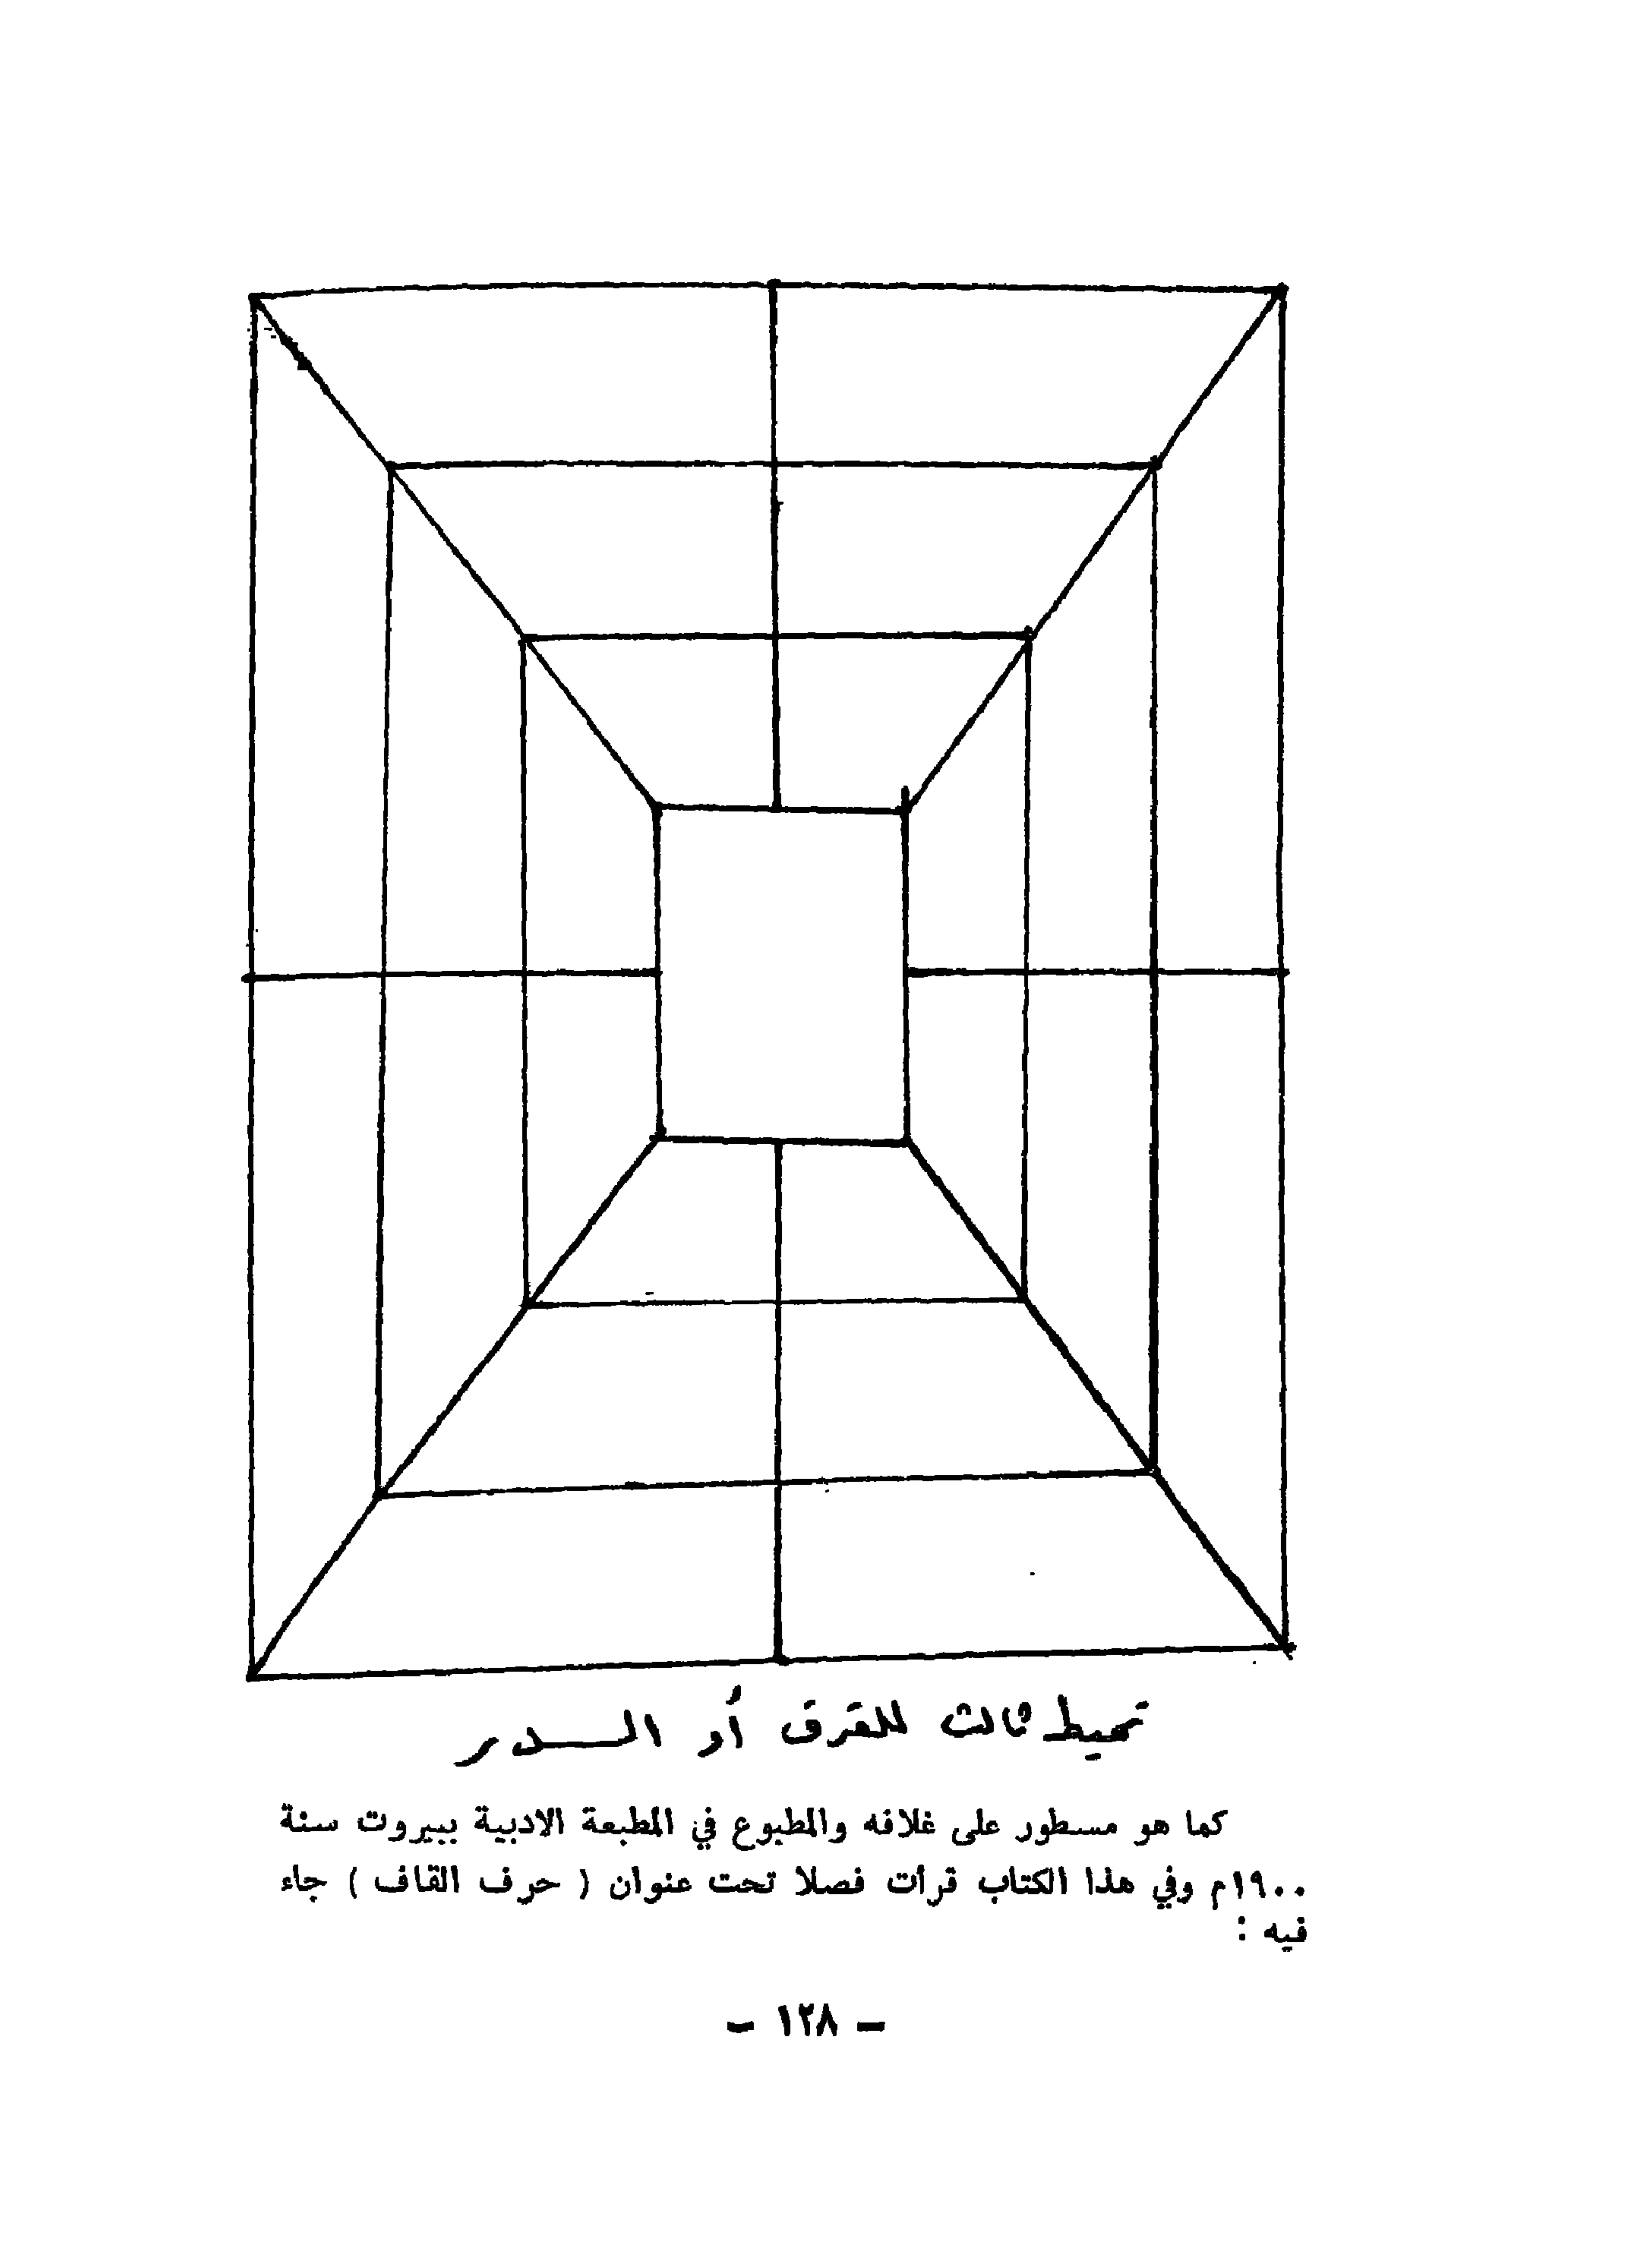 تخطيط ثالث للقرق أو الـــدر
كما هو مسطور على غلافه والمطبوع في المطبعة الادبية ببيروت سنة
١٩٠٠م وفي هذا الكتاب قرأت فصلا تحت عنوان ( حرف القاف ) جاء
فيه :
- ١٢٨ -